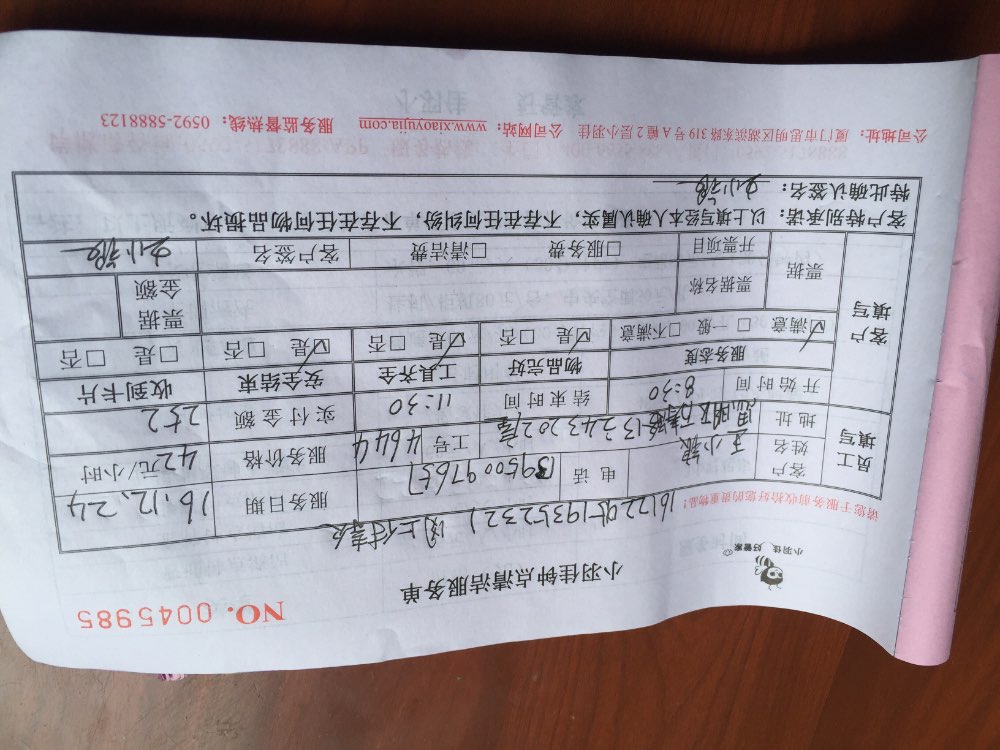 NO. 0045985
小羽佳钟点清洁服务单
小羽佳 好管家
请您于服务前收拾好您的贵重物品！
1612205193523321 网上付款
员工填写 客户姓名 王小姐 电话 13950097657 服务日期 16.12.24
工号 4644 服务价格 42元/小时
地址 13 243 202
开始时间 8:30 结束时间 11:30 实付金额 252
服务态度 物品完好 工具齐全 安全结束 收到卡片
客户填写 ☑满意 □一般 □不满意 ☑是 □否 ☑是 □否 ☑是 □否 □是 □否
票据 票据名称 票据金额
开票项目 □服务费 □清洁费 客户签名
客户特别承诺：以上填写经本人确认属实，不存在任何纠纷，不存在任何物品损坏。
特此确认签名：
公司地址：厦门市思明区湖滨东路319号A幢2层小羽佳 公司网站：www.xiaoyujia.com 服务监督热线：0592-5888123